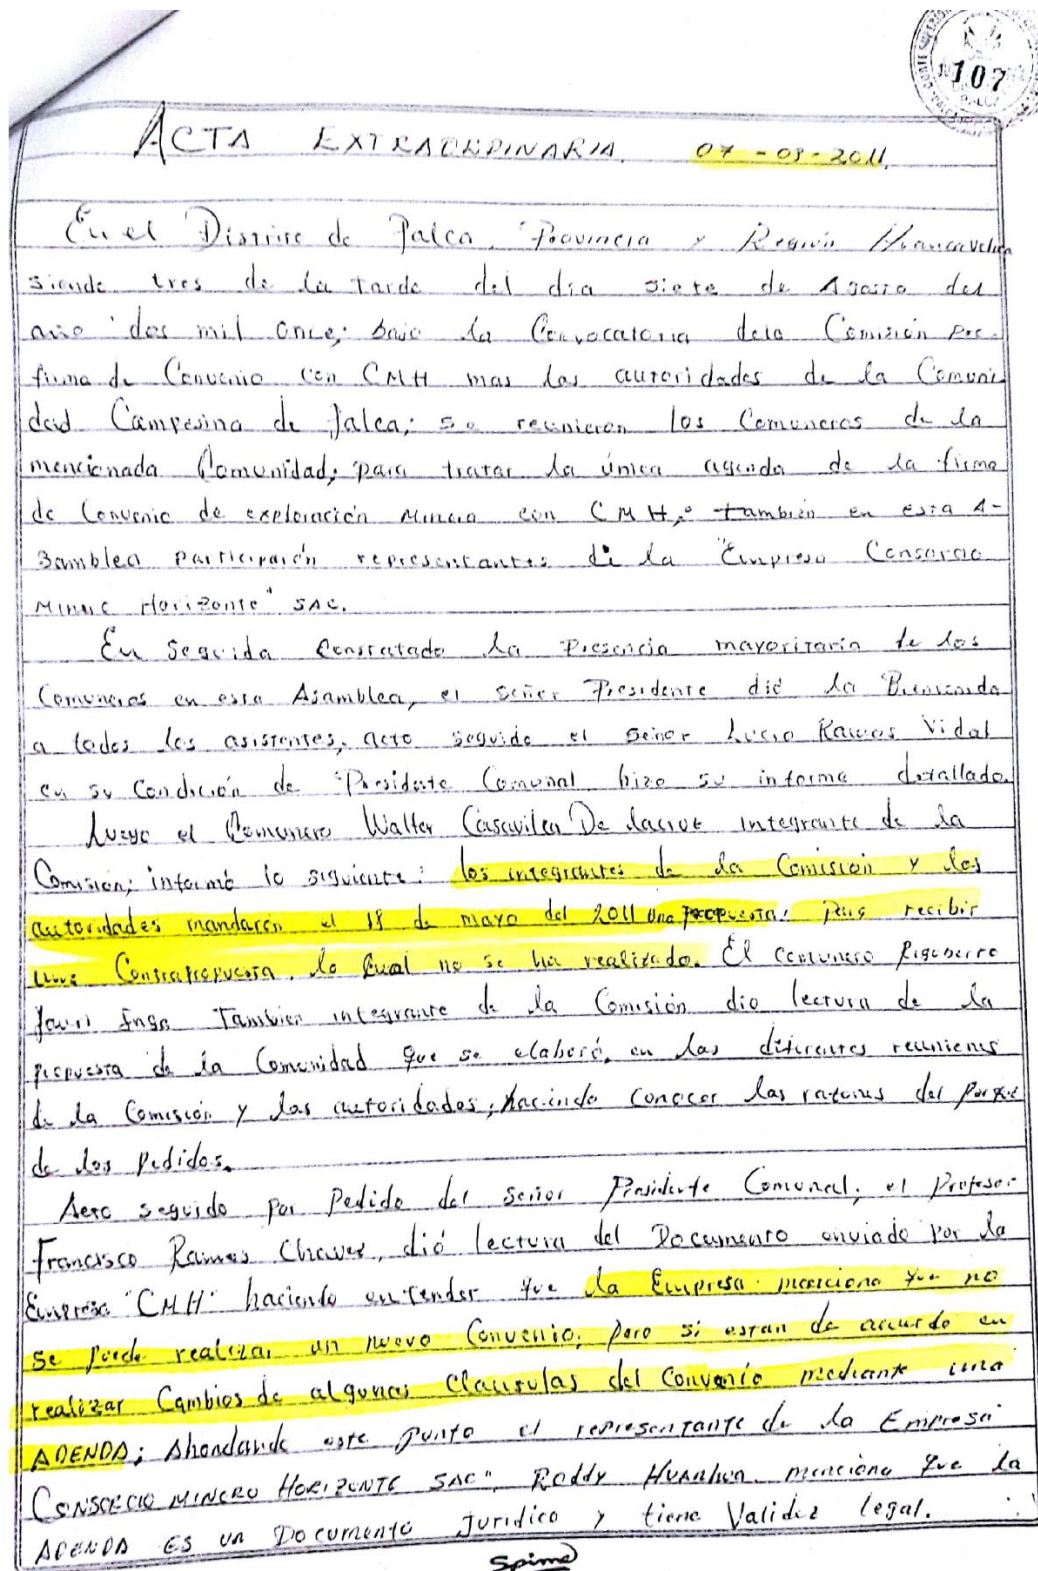 107
PALCA
ACTA EXTRAORDINARIA. 07-08-2011.
En el Distrito de Palca, Provincia y Región Huancavelica
siendo tres de la tarde del día siete de Agosto del
año dos mil once; bajo la Convocatoria dela Comisión Pro-
firma de Convenio con CMH mas las autoridades de la Comuni-
dad Campesina de Palca; se reunieron los Comuneros de la
mencionada Comunidad; para tratar la única agenda de la firma
de Convenio de exploración Minera con CMH, también en esta A-
samblea participarón representantes de la "Empresa Consorcio
Minero Horizonte" SAC.
En Seguida Constatado la Presencia mayoritaria de los
Comuneros en esta Asamblea, el señor Presidente dió la Bienvenida
a todos los asistentes, acto seguido el señor Lucio Ramos Vidal
en su Condición de Presidente Comunal hizo su informe detallado
Luego el Comunero Walter Casavilca De integrante de la
Comisión; informó lo siguiente: los integrantes de la Comisión y los
autoridades mandarón el 18 de mayo del 2011 una propuesta; para recibir
una Contrapropuesta, lo qual no se ha realizado. El comunero Rigoberto
Inga También integrante de la Comisión dio lectura de la
propuesta de la Comunidad que se elaboró, en las diferentes reuniones
de la Comisión y las autoridades, haciendo conocer las razones del porque
de los pedidos.
Acto seguido por Pedido del señor Presidente Comunal, el Profesor
Francisco Ramos Chavez, dió lectura del Documento enviado por la
Empresa "CMH" haciendo entender que la Empresa menciona que no
se puede realizar un nuevo Convenio, pero si estan de acuerdo en
realizar Cambios de algunas Clausulas del Convenio mediante una
ADENDA; Ahondando este punto el representante de la Empresa
CONSORCIO MINERO HORIZONTE SAC", Roddy menciona que la
ADENDA ES UN Documento Juridico y tiene Validez legal.